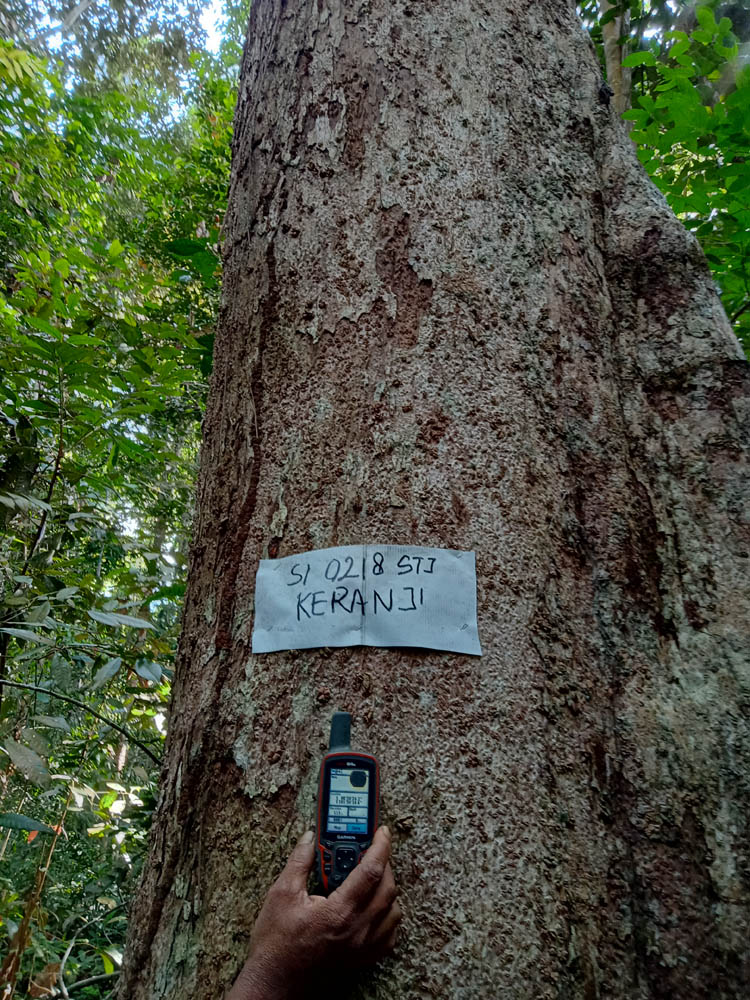 SI 0218 STJ
KERANJI
GARMIN